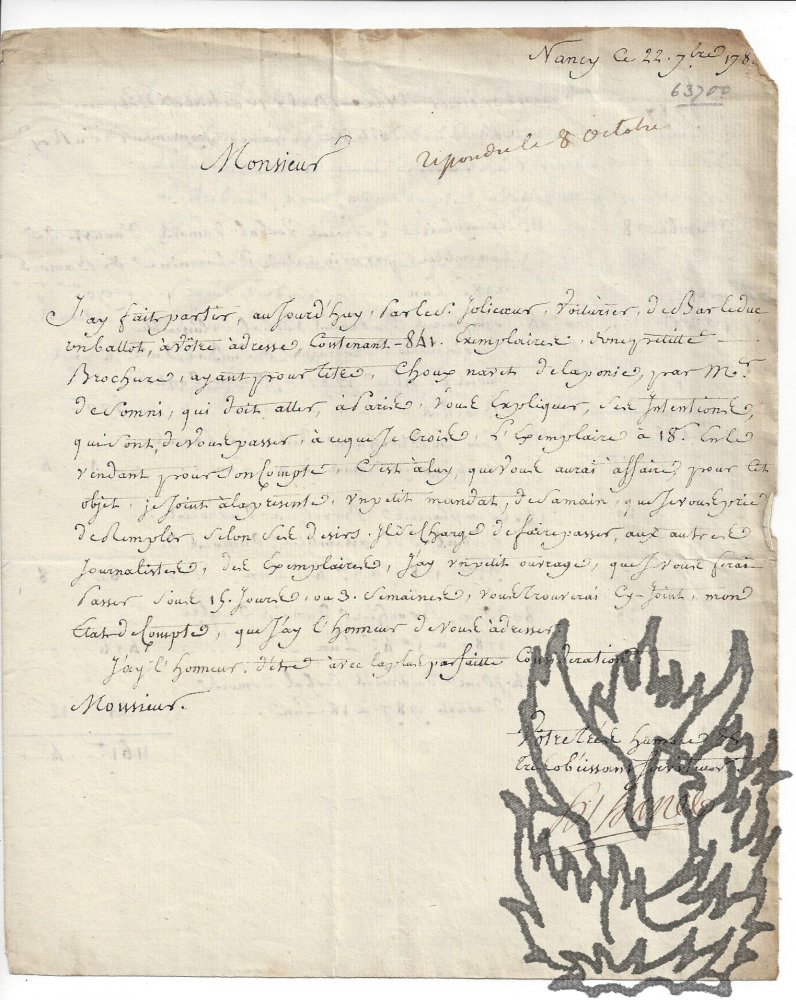 Nancy Ce 22. 7.bre 178
63700
Monsieur
répondu le 8 Octobre
J'ay fait partir, au Jourd'huy, par le Sr. Jolicœur, Voiturier, de Bar le duc
un ballot, à vôtre adresse, Contenant 841. Exemplaires d'une petitte
Brochure, ayant pour titre, Choux navets de laponie, par Mr.
de Somni, qui doit aller, à Paris vous Expliquer, ses Intentions,
qui sont, de vous passer, à ce que Je Crois, L'Exemplaire à 18s. En le
vendant pour son Compte, C'est à luy, que vous aurai affaire, pour Cet
objet, je Joint à la présente, un petit mandat, de sa main, que Je vous prie
de Remplir, selon ses desirs. Il se Charge de faire passer, aux autres
Journalistes, des Exemplaires, J'ay un petit ouvrage, que Je vous ferai
Passer sous 15. Jours, ou 3. Semaines, vous trouverai Cy-Joint, mon
Etat de Compte, que J'ay l'Honneur de vous adresser
J'ay l'Honneur d'être avec la plus parfaitte Considération
Monsieur.
Votre très humble &
très obéissant serviteur